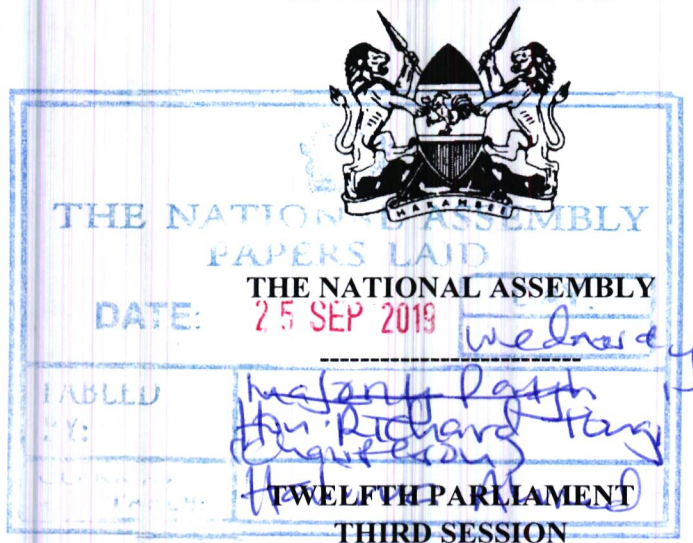 HARAMBEE
THE NATIONAL ASSEMBLY
PAPERS LAID
THE NATIONAL ASSEMBLY
DATE: 25 SEP 2019
Wednesday
TABLED
BY:
Hon. Richard
TWELFTH PARLIAMENT
THIRD SESSION